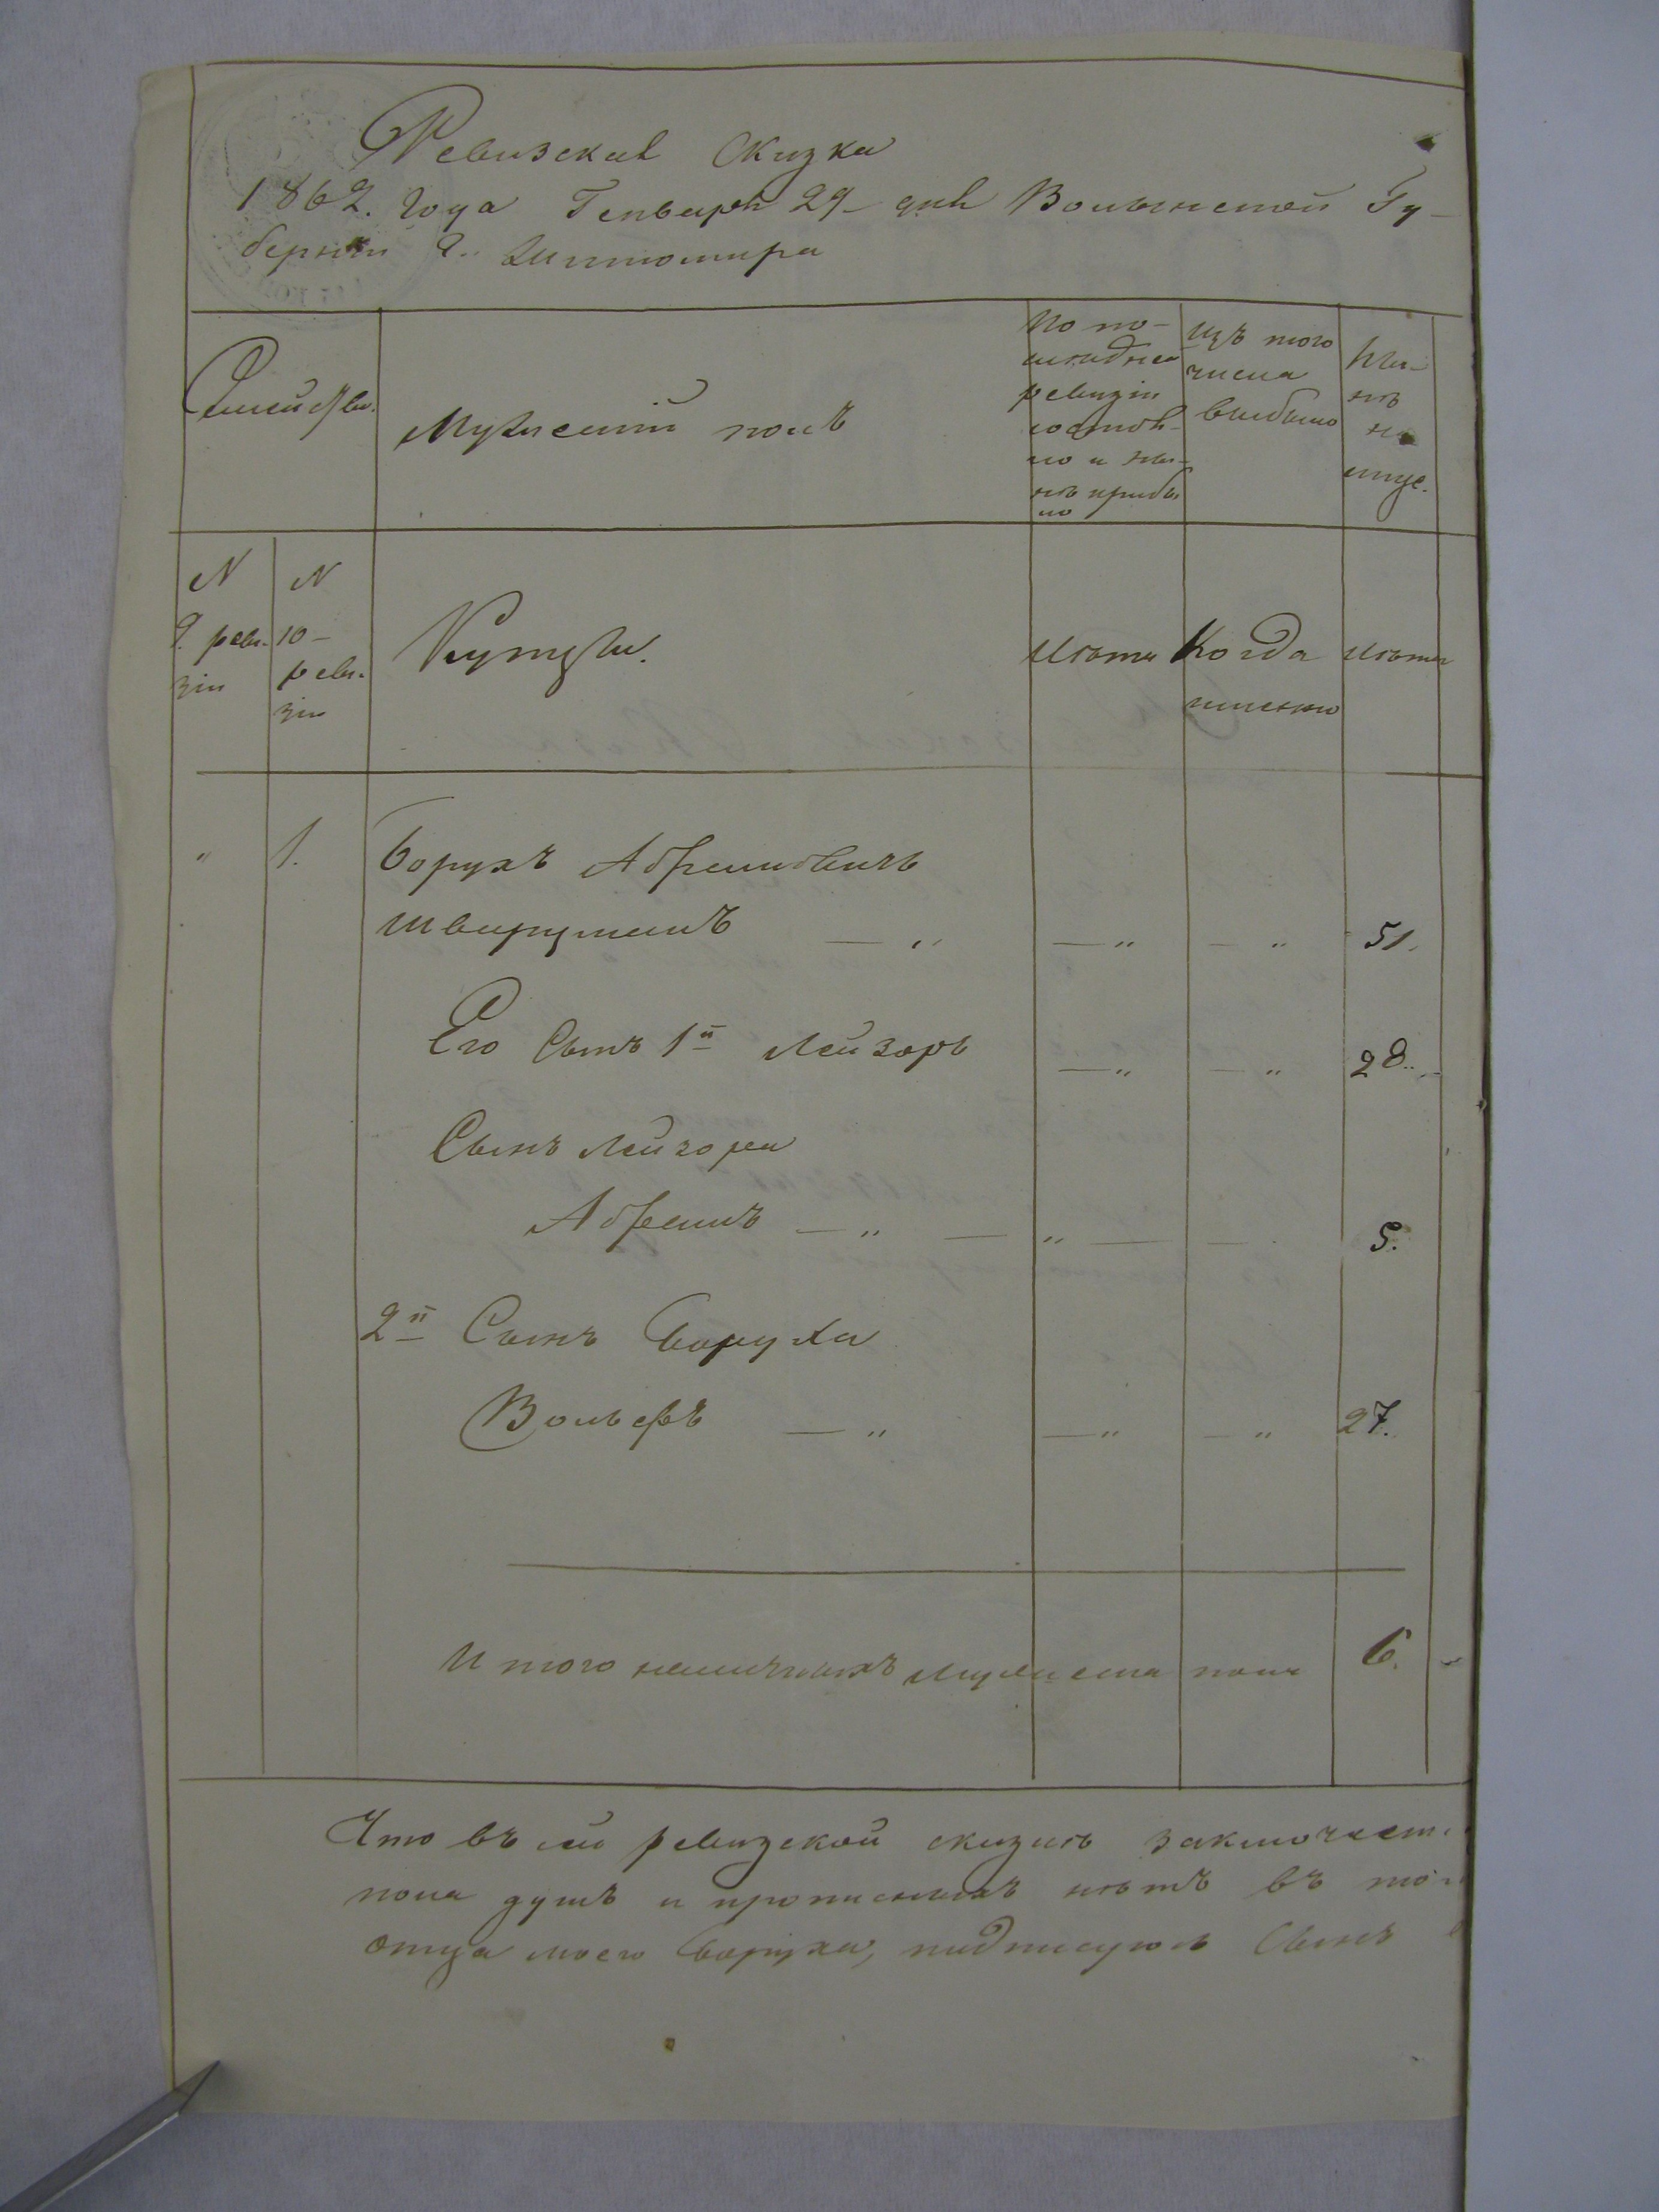 Ревизская Сказка
1862. года Генваря 29 дня Волынской Гу-
берніи г. Житомира
Семейства.
Мужескій полъ
По по-
слѣдней
ревизіи
состоя-
ло и по-
слѣ прибы
ло
Изъ того
числа
выбыло
Ны-
нѣ
на
лице.
N
9. реви-
зіи
N
10-
реви-
зіи
Купцы.
Лѣта
Когда
именно
Лѣта
" 1. Борухъ Абрамовичъ
Шварцманъ — " — " — " 51.
Его Сынъ 1й Лейзоръ — " — " 28..
Сынъ Лейзора
Абрамъ — " — " — — 5.
2й Сынъ Боруха
Вольфъ — " — " — " 27.
И того наличныхъ мужеска пола 6.
Что въ сей ревизской сказкѣ заключает
пола душъ и прописныхъ нѣтъ въ том
отца моего Боруха, подписуюсь Сынъ